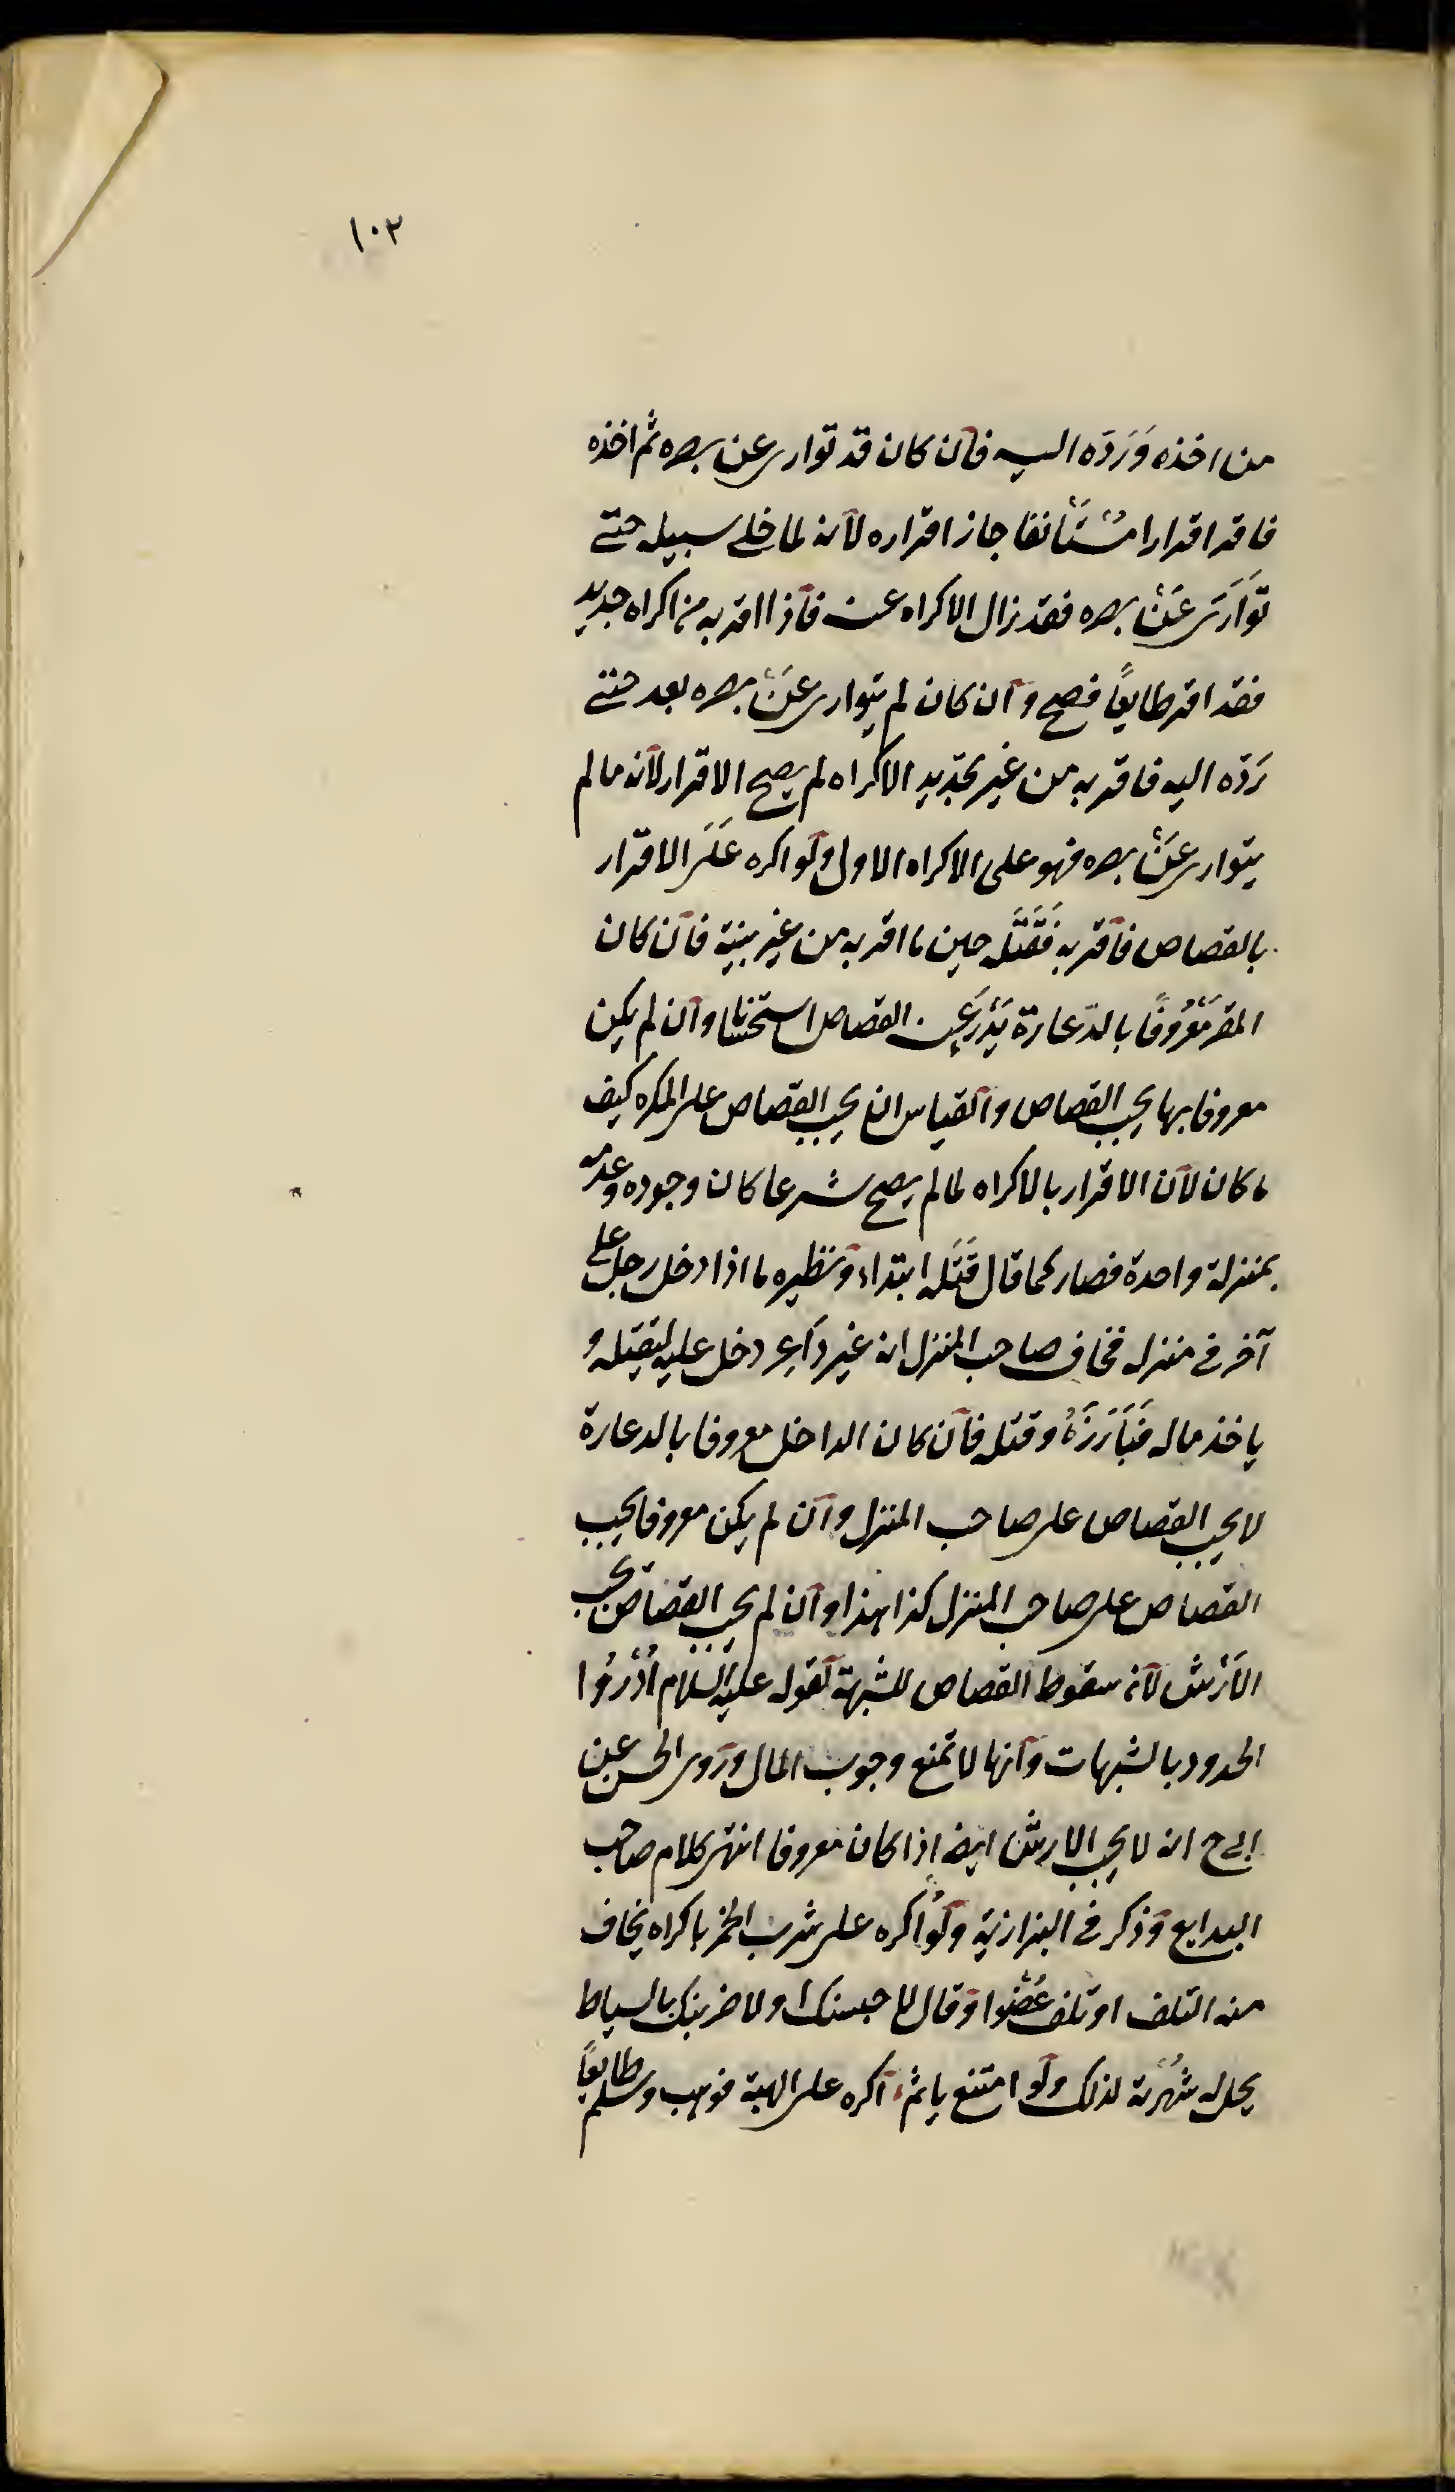 ١٠٢
من اخذه وَرَدّه اليه فان كان قد توارى عن بصره ثم اخذه
فاقر اقرارا مُسْتَأنفا جاز اقراره لانه لما خلى سبيله حتى
تَوَارَى عَنْ بصره فقد زال الاكراه عنه فاذا اقر به من اكراه جديد
فقد اقر طايعًا فصح وان كان لم يتوارى عَنْ بصره بعد حتى
رَدّه اليه فاقر به من غير تجديد الاكراه لم يصح الاقرار لانه ما لم
يتوارى عَنْ بصره فهو على الاكراه الاول ولو اكره عَلَى الاقرار
بالقصاص فاقر به فَقَتَلَه حين ما اقر به من غير بينة فان كان
المقر مَعْرُوفًا بالدّعارة يَدْرَئ عنه القصاص استحسانا وان لم يكن
معروفا بها يجب القصاص والقياس ان يجب القصاص على المكره كيف
ما كان لان الاقرار بالاكراه لما لم يصح شرعا كان وجوده وعدمه
بمنزلة واحدة فصار كما قال قَتَلَه ابتداء ونظيره ما اذا دخل رجل على
آخر فى منزله فخاف صاحب المنزل انه غير دَاعِر دخل عليه ليقتله و
ياخذ ماله فَبَارَزَهُ وقتله فان كان الداخل معروفا بالدعارة
لا يجب القصاص على صاحب المنزل وان لم يكن معروفا يجب
القصاص على صاحب المنزل كذا هذا وان لم يجب القصاص يجب
الاَرْش لان سقوط القصاص للشبهة لقوله عليه السلام اُدْرَؤُا
الحدود بالشبهات وانها لا تمنع وجوب المال وروى الحسن عن
ابى ح انه لا يجب الارش ايضا اذا كان معروفا انتهى كلام صاحب
البدايع وذكر فى البزازية ولو اُكره على شرب الخمر باكراه يخاف
منه التلف او تلف عُضْوا وقال لاحبسنك او لاضربنك بالسياط
يحل له شُرْبه لذلك ولو امتنع ياثم اكره على الهبة فوهب وسلم طايعًا